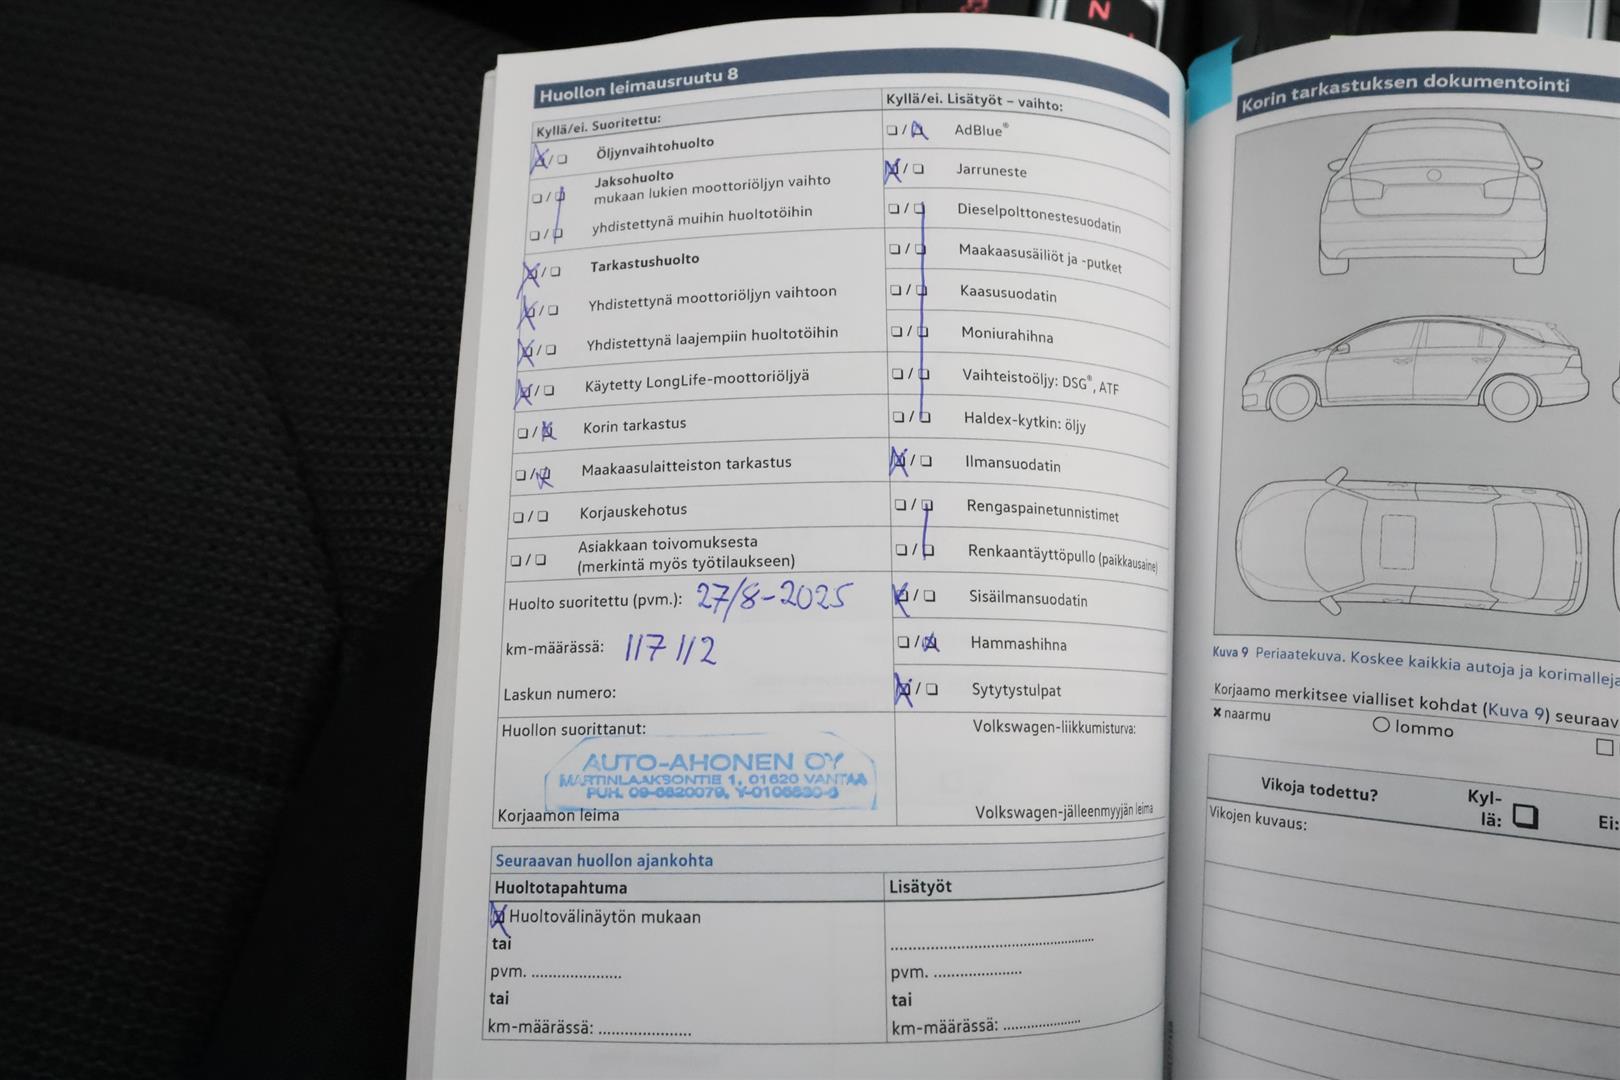 N
Huollon leimausruutu 8
Kyllä/ei. Suoritettu:
Öljynvaihtohuolto
Jaksohuolto
mukaan lukien moottoriöljyn vaihto
yhdistettynä muihin huoltotöihin
Tarkastushuolto
Yhdistettynä moottoriöljyn vaihtoon
Yhdistettynä laajempiin huoltotöihin
Käytetty LongLife-moottoriöljyä
Korin tarkastus
Maakaasulaitteiston tarkastus
Korjauskehotus
Asiakkaan toivomuksesta
(merkintä myös työtilaukseen)
Huolto suoritettu (pvm.): 27/8-2025
km-määrässä: 117 112
Laskun numero:
Huollon suorittanut:
AUTO-AHONEN OY
MARTINLAAKSONTIE 1, 01620 VANTAA
PUH. 09-8820079, Y-0106830-6
Korjaamon leima
Kyllä/ei. Lisätyöt – vaihto:
AdBlue®
Jarruneste
Dieselpolttonestesuodatin
Maakaasusäiliöt ja -putket
Kaasusuodatin
Moniurahihna
Vaihteistoöljy: DSG®, ATF
Haldex-kytkin: öljy
Ilmansuodatin
Rengaspainetunnistimet
Renkaantäyttöpullo (paikkausaine)
Sisäilmansuodatin
Hammashihna
Sytytystulpat
Volkswagen-liikkumisturva:
Volkswagen-jälleenmyyjän leima
Seuraavan huollon ajankohta
Huoltotapahtuma
Huoltovälinäytön mukaan
tai
pvm. ......................
tai
km-määrässä: ......................
Lisätyöt
................................................
pvm. .....................
tai
km-määrässä: ..................
Korin tarkastuksen dokumentointi
Kuva 9 Periaatekuva. Koskee kaikkia autoja ja korimalleja
Korjaamo merkitsee vialliset kohdat (Kuva 9) seuraav
x naarmu
○ lommo
Vikoja todettu?
Kyl-
lä:
Ei:
Vikojen kuvaus: